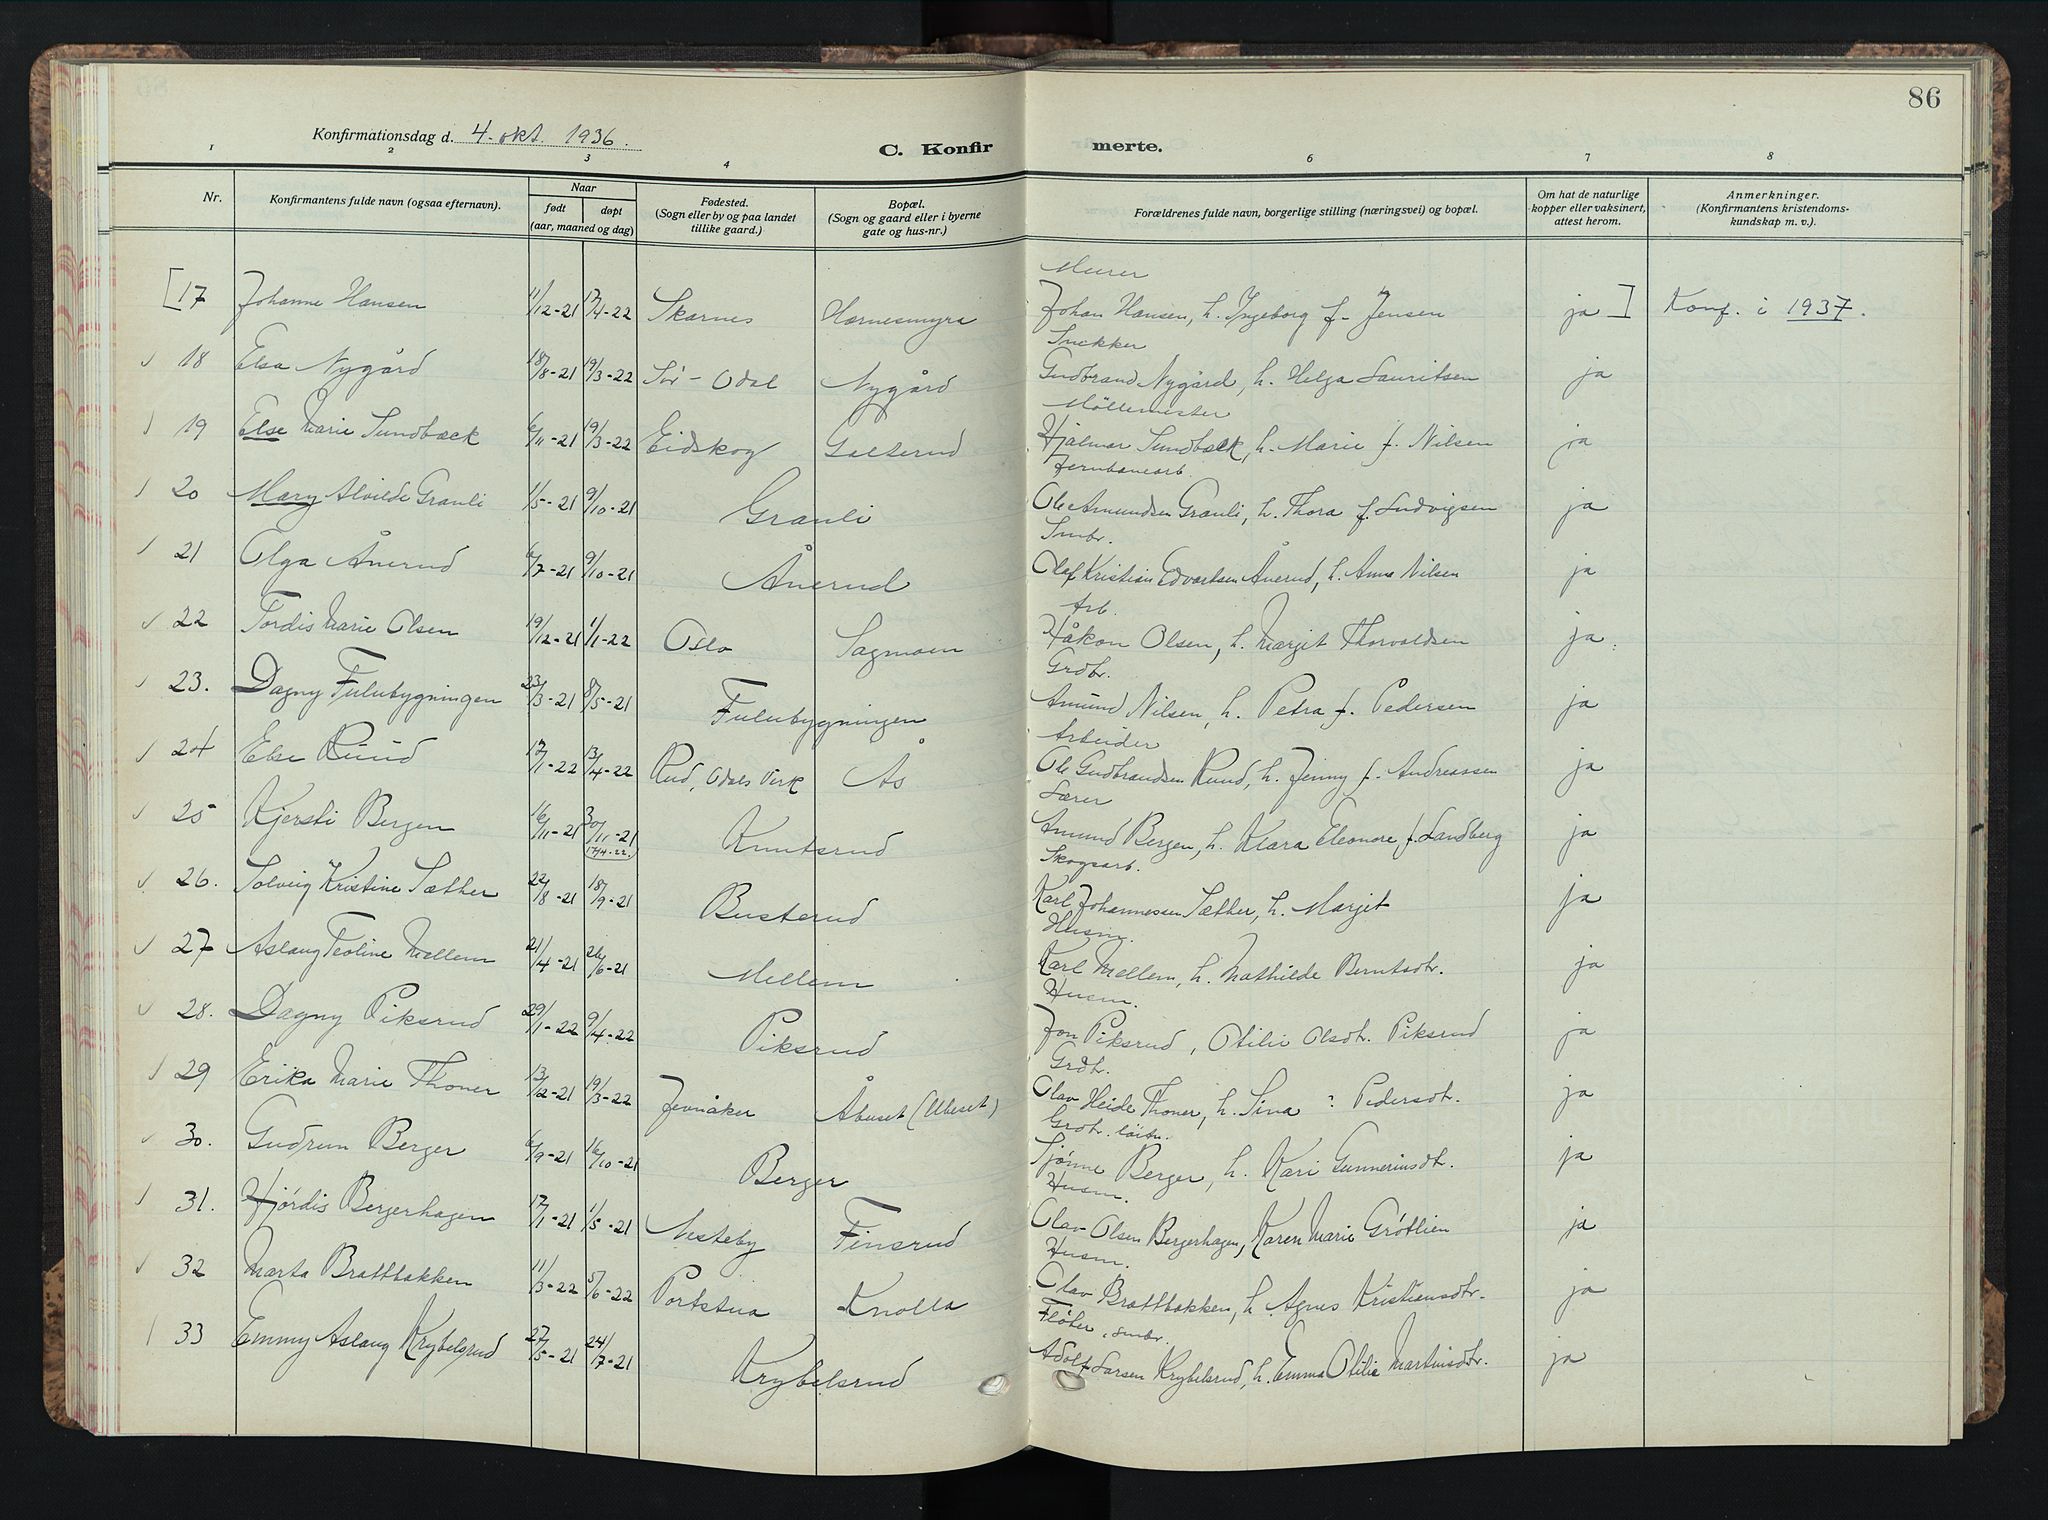 86
Konfirmationsdag d. 4. okt. 1936.
C. Konfir merte.
1 2 3 4 6 7 8
Nr. Konfirmantens fulde navn (ogsaa efternavn). Naar født døpt (aar, maaned og dag) Fødested. (Sogn eller by og paa landet tillike gaard.) Bopæl. (Sogn og gaard eller i byerne gate og hus-nr.) Forældrenes fulde navn, borgerlige stilling (næringsvei) og bopæl. Om hat de naturlige kopper eller vaksinert, attest herom. Anmerkninger. (Konfirmantens kristendoms-kundskap m. v.).
Murer
[17 Johanne Hansen 11/12-21 17/4-22 Skarnes Hornesmyra Johan Hansen, h. Ingeborg f. Jensen ja ] Konf. i 1937.
Snekker
18 Elsa Nygård 18/8-21 19/3-22 Sør-Odal Nygård Gudbrand Nygård, h. Helga Lauritsen ja
Möllemester
19 Else Marie Sundbæck 6/11-21 19/3-22 Eidskog Galterud Hjalmar Sundbæk, h. Marie f. Nilsen ja
Jernbanearb.
20 Mary Alvilde Granli 1/5-21 9/10-21 Granli Ole Amundsen Granli, h. Thora f. Ludvigsen ja
Smbr.
21 Olga Ånerud 6/7-21 9/10-21 Ånerud Olaf Kristian Edvartsen Ånerud, h. Anna Nilsen ja
Arb.
22 Tordis Marie Olsen 19/12-21 1/1-22 Oslo Sagmoen Håkon Olsen, h. Margit Thorvaldsen ja
Grdbr.
23. Dagny Fulubygningen 23/3-21 8/5-21 Fulubygningen Amund Nilsen, h. Petra f. Pedersen ja
Arbeider
24 Else Ruud 17/1-22 13/4-22 Rud, Odals Verk Ås Ole Gudbrandsen Ruud, h. Jenny f. Andreassen ja
Lærer
25 Kjersti Bergen 16/11-21 30/11-21 (17/4-22.) Knutsrud Amund Bergen, h. Klara Eleonore f. Landberg ja
Skogsarb.
26. Solveig Kristine Sæther 22/8-21 18/9-21 Busterud Karl Johannessen Sæther, h. Margit ja
Husm.
27 Aslaug Teoline Mellem 21/4-21 26/6-21 Mellem Karl Mellem, h. Mathilde Berntsdtr. ja
Husm.
28. Dagny Piksrud 29/1-22 9/4-22 Piksrud Jon Piksrud, Otilie Olsdtr. Piksrud ja
Grdbr.
29 Erika Marie Thoner 13/12-21 19/3-22 Jevnåker Åbuset (Ubeset) Olav Heide Thoner, h. Sina Pedersdtr. ja
Grdbr. löitn.
30. Gudrun Berger 6/9-21 16/10-21 Berger Tjønne Berger, h. Kari Gunneriusdtr. ja
Husm.
31. Hjördis Bergerhagen 17/1-21 1/5-21 Nesteby Finsrud Olav Olsen Bergerhagen, Karen Marie Gröttlien ja
Husm.
32 Marta Brattbakken 11/3-22 5/6-22 Portstua Knolla Olav Brattbakken, h. Agnes Kristiansdtr. ja
Fløter, smbr.
33 Emmy Aslaug Krybelsrud 27/5-21 24/7-21 Krybelsrud Adolf Larsen Krybelsrud, h. Emma Otilie Martinsdtr. ja